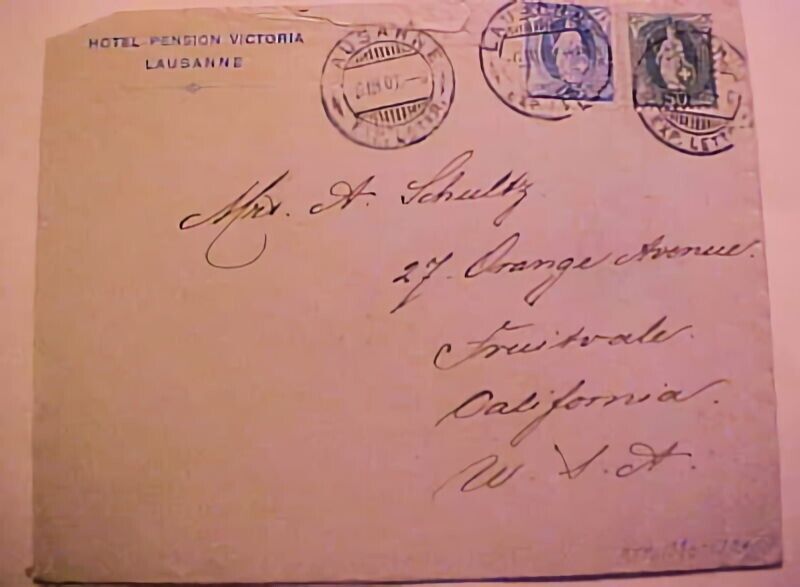 HOTEL-PENSION VICTORIA
LAUSANNE
LAUSANNE
EXP. LETTR.
LAUSANNE
EXP. LE
50
EXP. LETT
Mrs. A. Schultz
27. Orange Avenue.
Fruitvale.
California.
U. S. A.